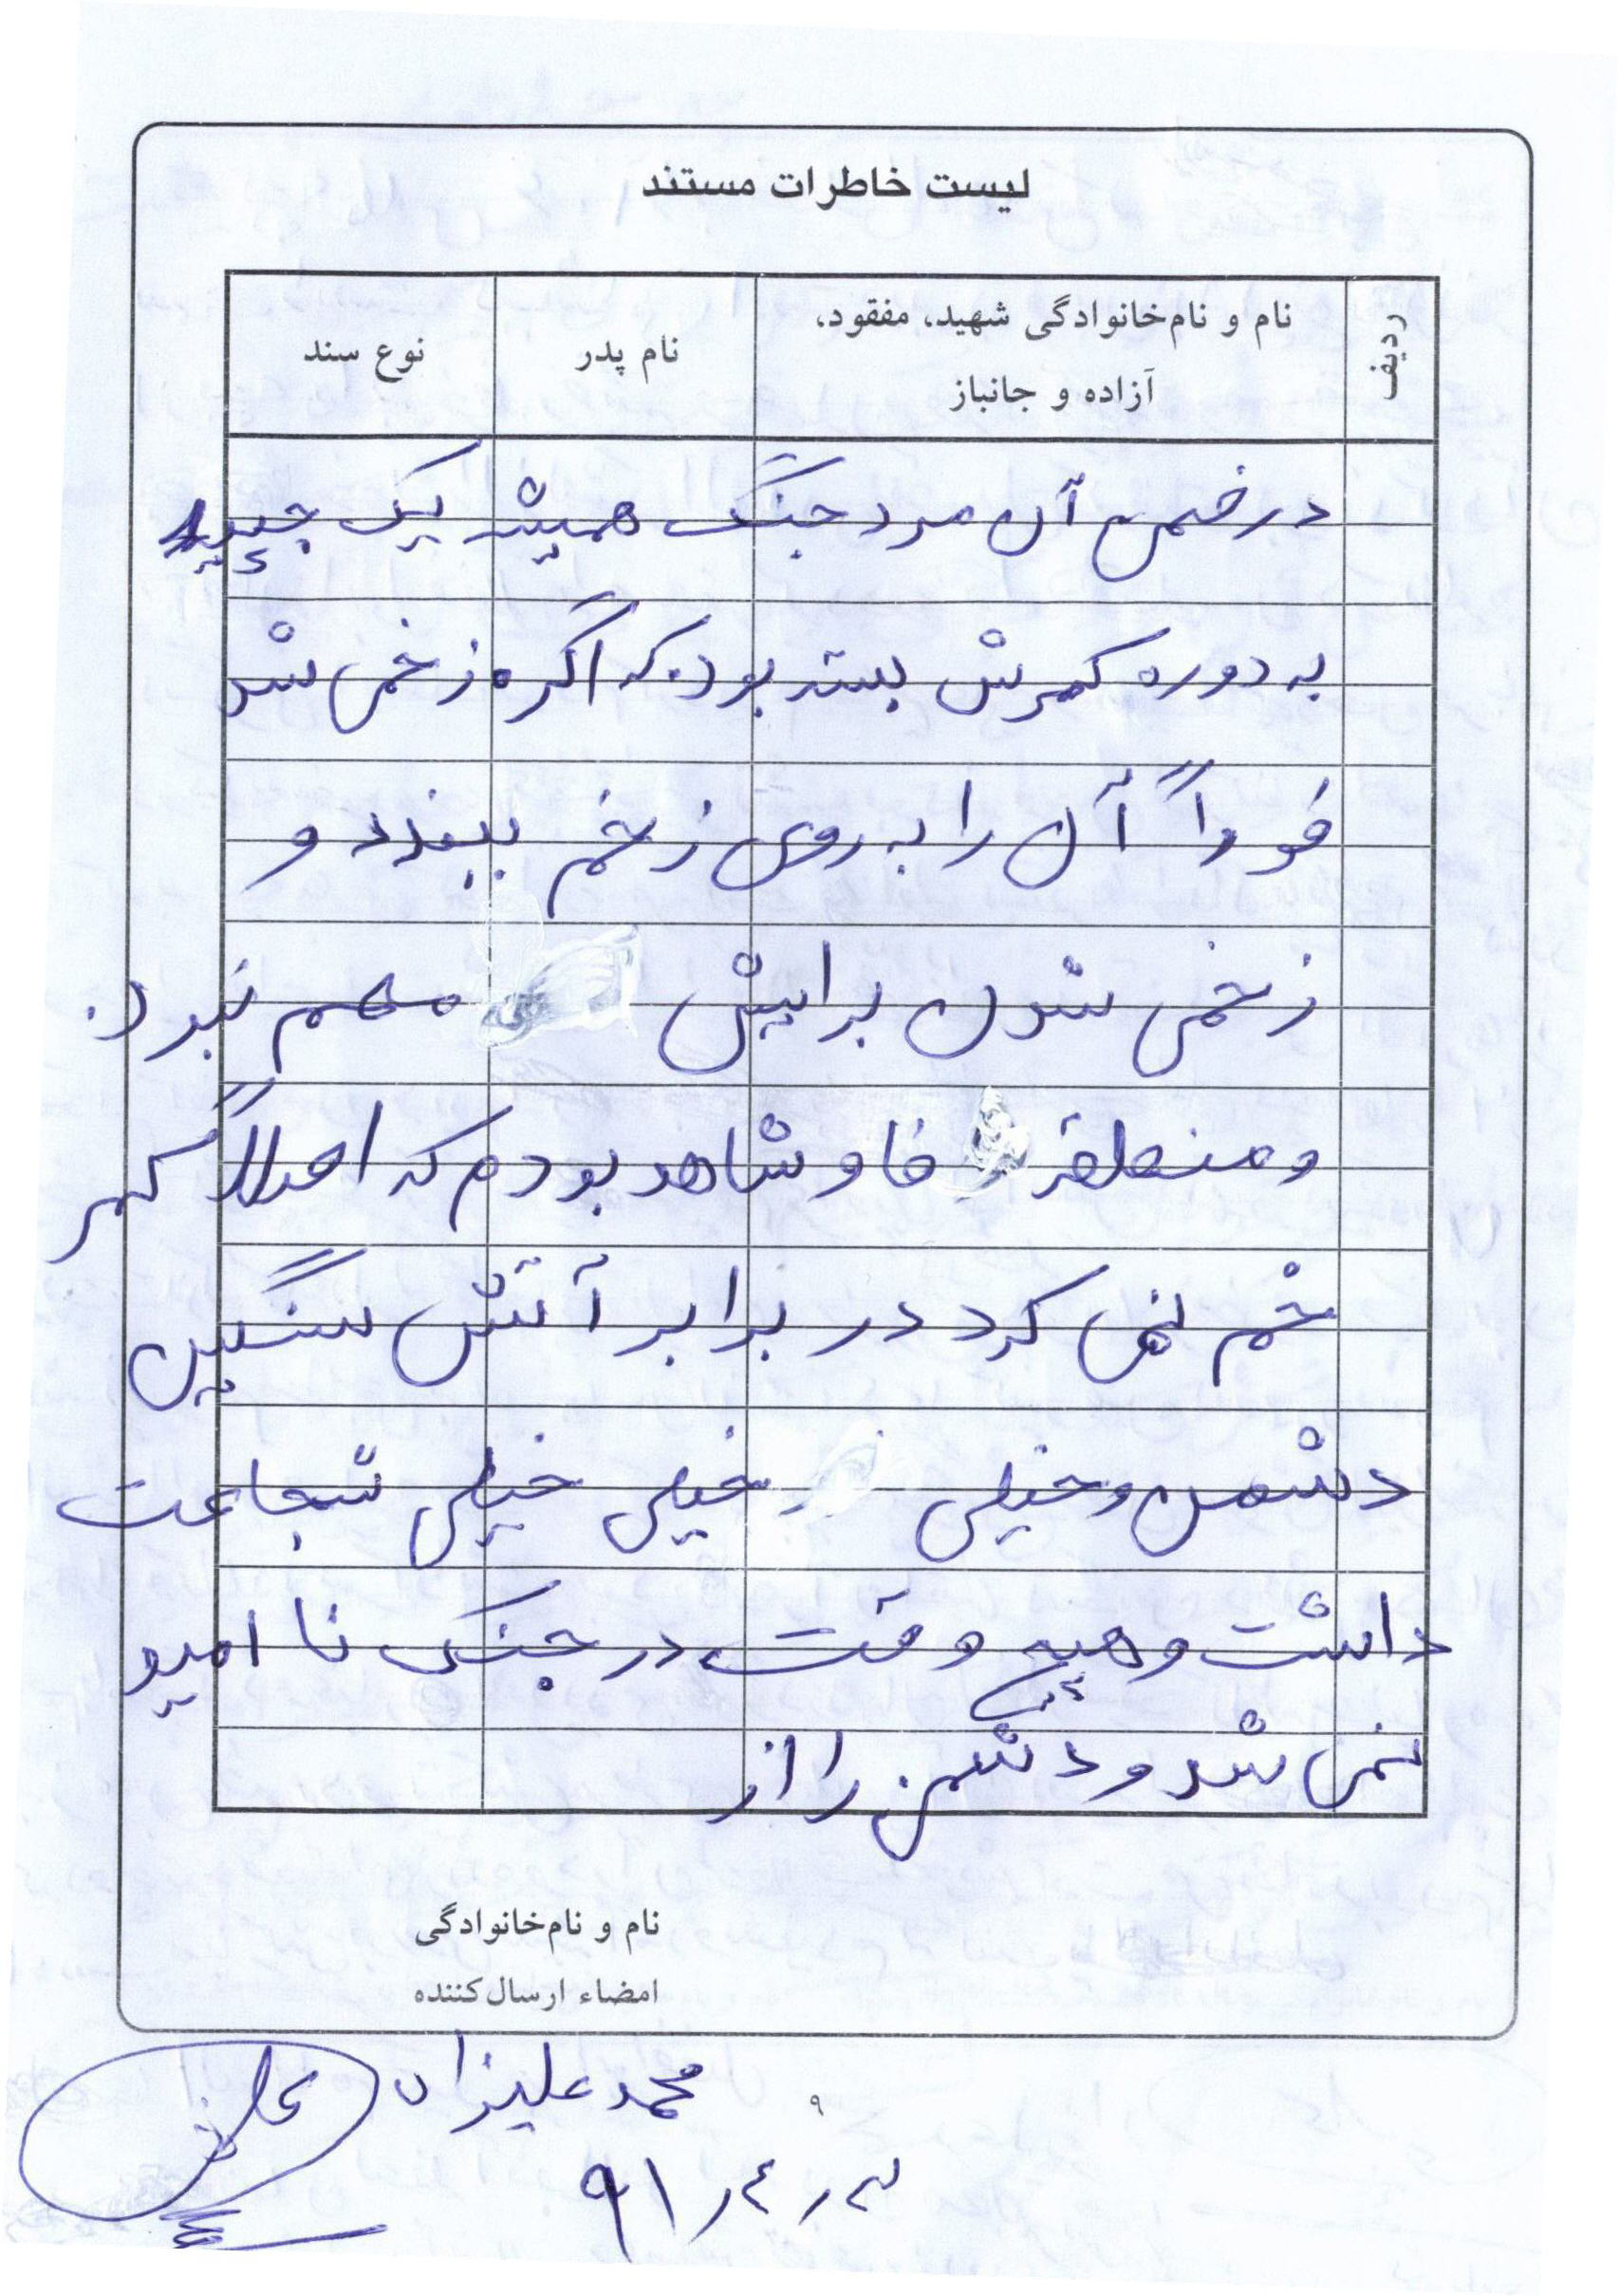 لیست خاطرات مستند
ردیف
نام و نام‌خانوادگی شهید، مفقود، آزاده و جانباز
نام پدر
نوع سند
در ضمن آن مرد جنگ همیشه یک
به دوره کمرش بسته بود. که اگره زخمی شد
فوراً آن را به روی زخم ببندد و
زخمی شدن برایش مهم نبود.
و منطقه فاو شاهد بودم که اصلاً کمر
خم نمی کرد در برابر آتش سنگین
دشمن و خیلی خیلی خیلی شجاعت
داشت و هیچ وقت در جنگ نا امید
نمی شد و دشمن را از
نام و نام‌خانوادگی
امضاء ارسال‌کننده
محمد علیزاده
۹
۹۱٫٤٫۳